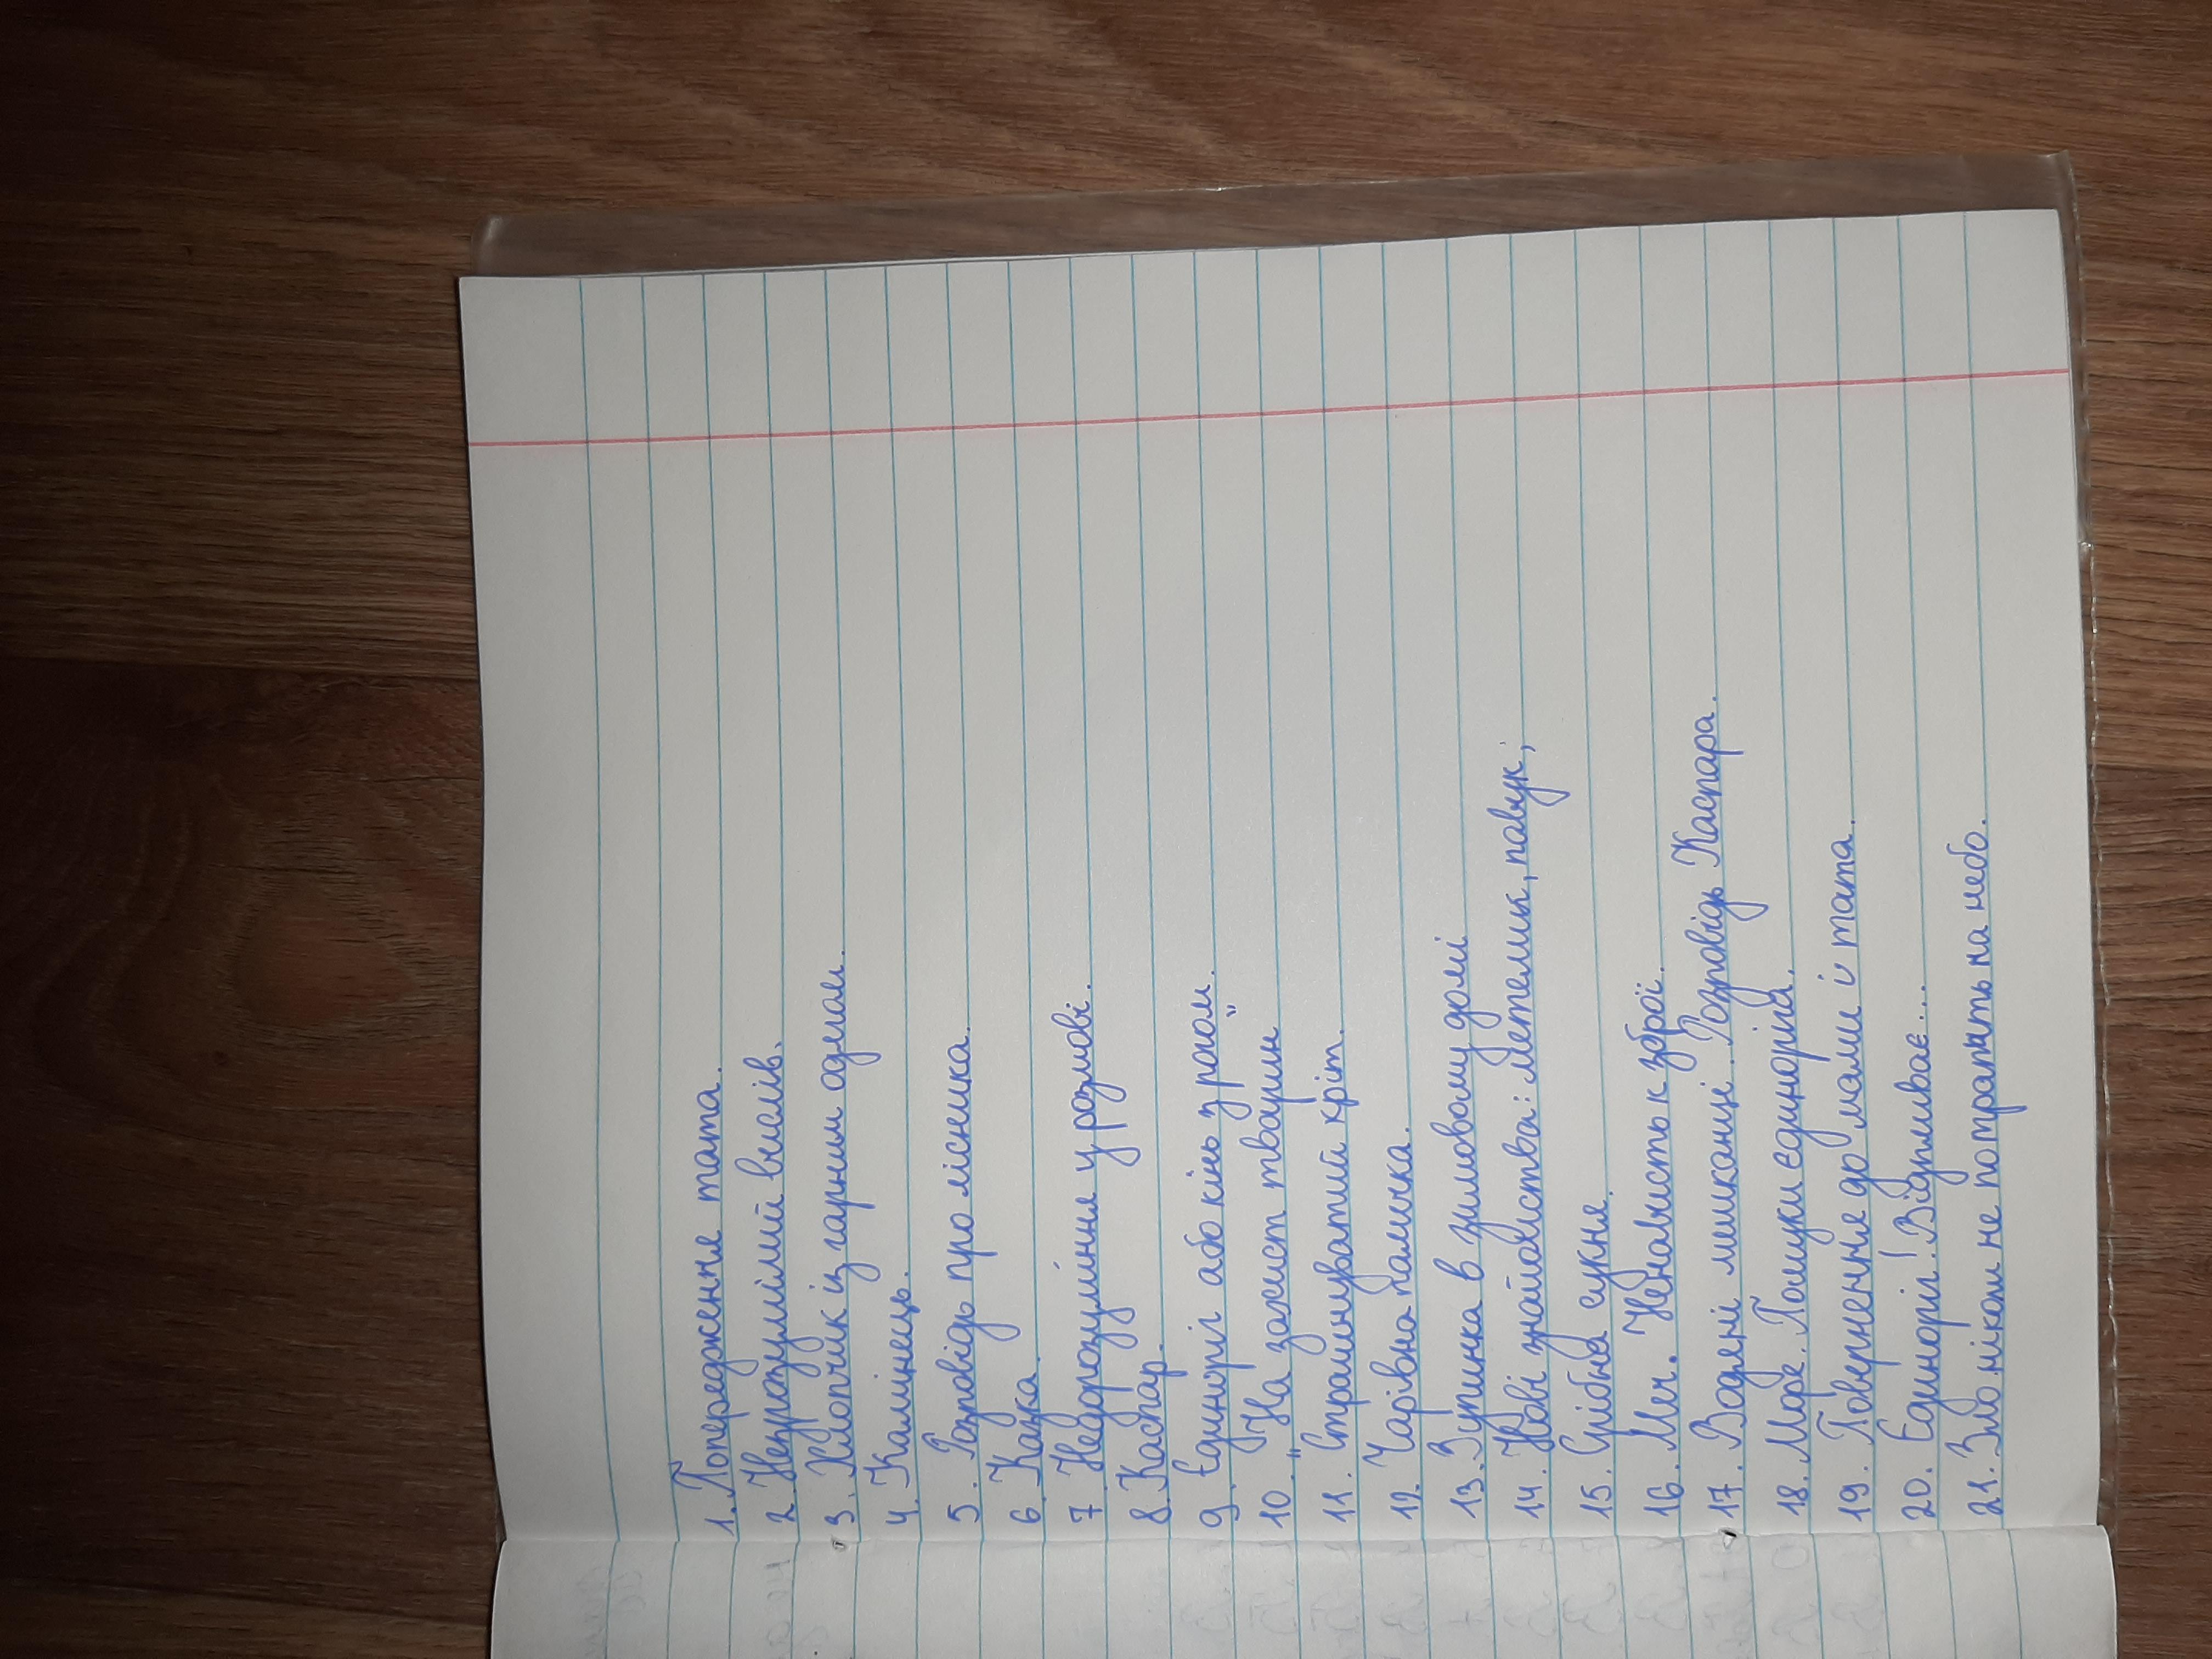 1. Попередження тата.
2. Незрозумілий вислів.
3. Хлопчик із гарним одягом.
4. Камінець.
5. Розповідь про лісника.
6. Казка.
7. Недорозуміння у розмові.
8. Каспар.
9. Єдиноріг або кінь з рогом.
10. "На захист тварин"
11. Страшнуватий кріт.
12. Чарівна паличка.
13. Зупинка в зимовому домі
14. Нові знайомства: метелик, павук;
15. Срібна сукня.
16. Меч. Ненависть к зброї.
17. Водяні мешканці. Розповідь Каспара.
18. Море. Пошуки єдиноріга.
19. Повернення до мами і тата.
20. Єдиноріг! Відпливає...
21. Зло ніколи не потрапить на небо.